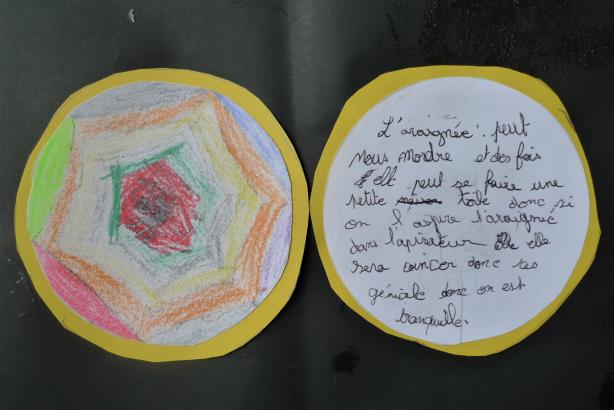 L'araignée : peut
nous mordre et des fois
elle peut se faire une
petite toile donc si
on l'aspire l'araignée
dans l'apirateur elle
sera coincer donc ses
géniale donc on est
tranquille.